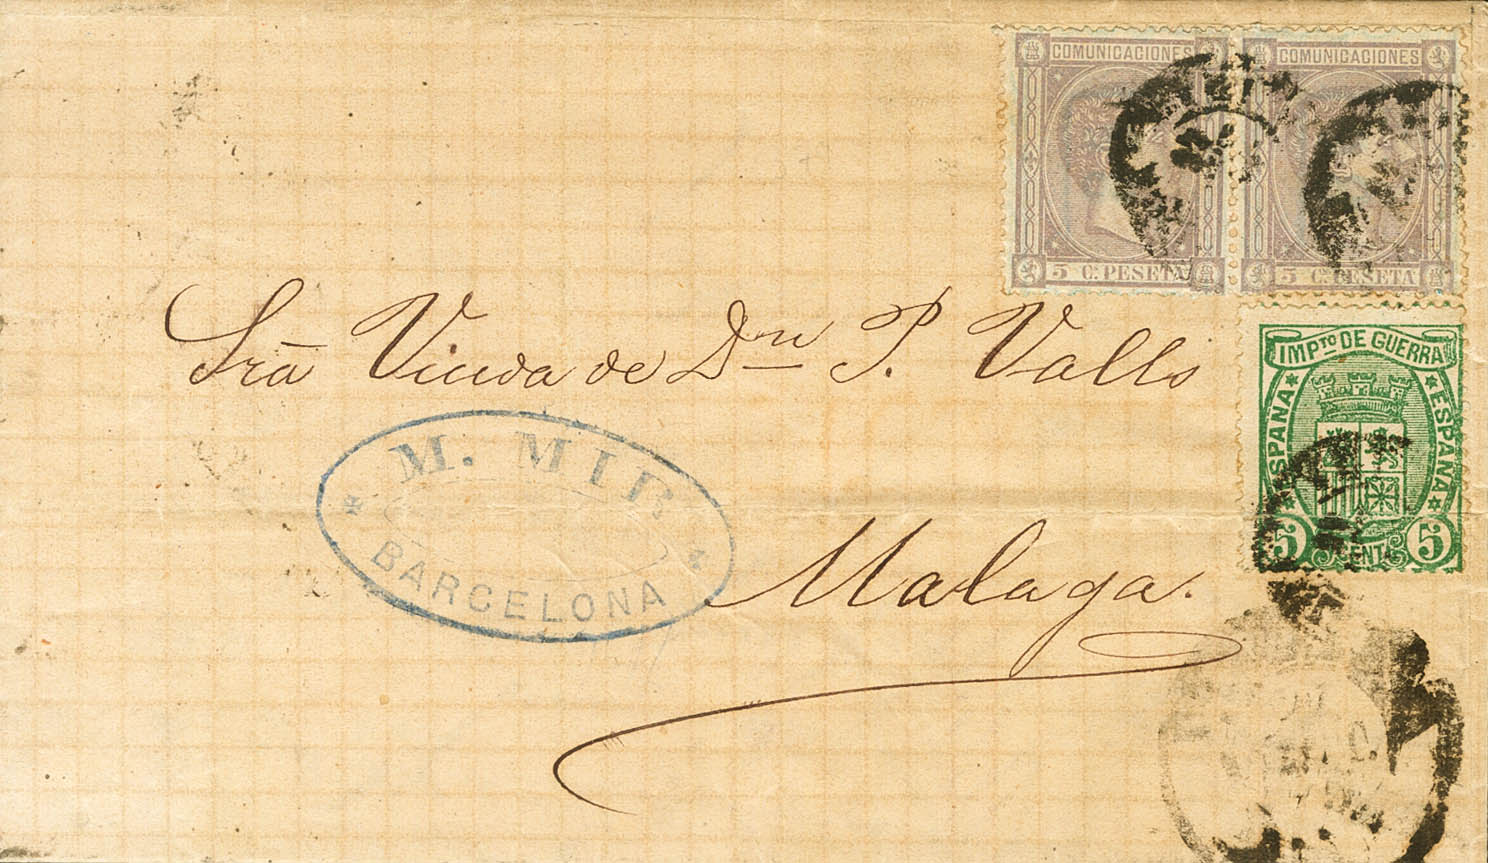 COMUNICACIONES
5 C. PESETA
COMUNICACIONES
5 C. PESETA
IMPTO DE GUERRA
ESPAÑA
ESPAÑA
5 CENT 5
Sra Viuda de Dn P. Valls
M. MIR
BARCELONA
Malaga.